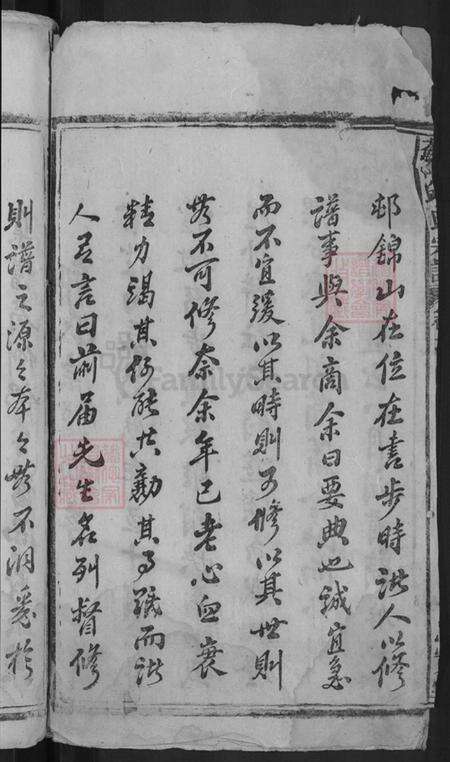 邨錦山在位在書步時諸人以修
譜事與余商余曰要典也誠宜急
而不宜緩以其時則可修以其世則
無不可修奈余年已老心血衰
精力竭其何能共勷其事哉而諸
人有言曰前届先生名列督修
則譜之源之本之無不洞悉於
FamilySearch